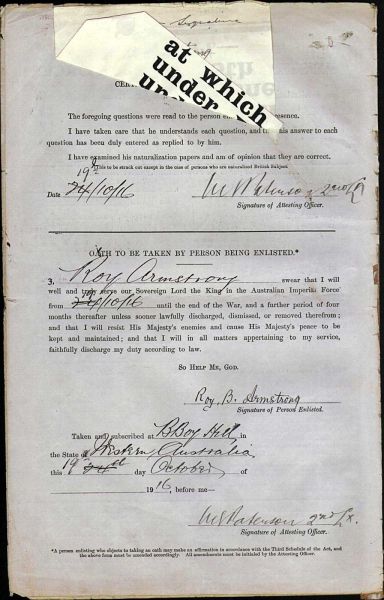 Signature
at which
under
un
CERT
The foregoing questions were read to the person en presence.
I have taken care that he understands each question, and that his answer to each
question has been duly entered as replied to by him.
I have examined his naturalization papers and am of opinion that they are correct.
This to be struck out except in the case of persons who are naturalized British Subject.
19th
Date 24/10/16 2nd Lt
Signature of Attesting Officer.
OATH TO BE TAKEN BY PERSON BEING ENLISTED.*
3. Roy Armstrong swear that I will
well and truly serve our Sovereign Lord the King in the Australian Imperial Force
from 24/10/16 until the end of the War, and a further period of four
months thereafter unless sooner lawfully discharged, dismissed, or removed therefrom; and
that I will resist His Majesty's enemies and cause His Majesty's peace to
be kept and maintained; and that I will in all matters appertaining to my service,
faithfully discharge my duty according to law.
SO HELP ME, GOD.
Roy B. Armstrong
Signature of Person Enlisted.
Taken and subscribed at BBoy Hill in
the State of Western Australia
this 19th 24th day October of
1916, before me—
2nd Lt.
Signature of Attesting Officer.
*A person enlisting who objects to taking an oath may make an affirmation in accordance with the Third Schedule of the Act, and
the above form must be amended accordingly. All amendments must be initialed by the Attesting Officer.